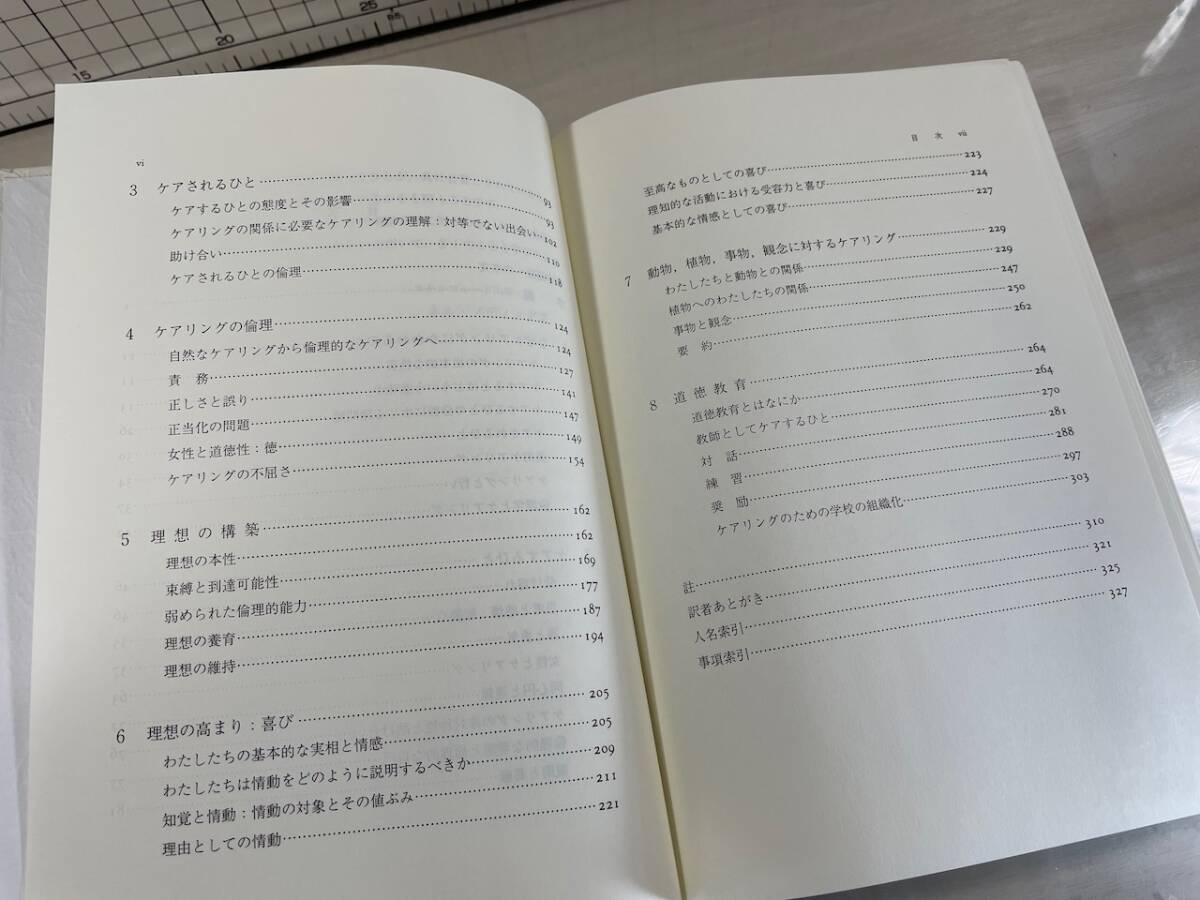 15
20
25
vi
3 ケアされるひと……93
ケアするひとの態度とその影響……93
ケアリングの関係に必要なケアリングの理解：対等でない出会い…102
助け合い……110
ケアされるひとの倫理……118
4 ケアリングの倫理……124
自然なケアリングから倫理的なケアリングへ……124
責　務……127
正しさと誤り……141
正当化の問題……147
女性と道徳性：徳……149
ケアリングの不屈さ……154
5 理想の構築……162
理想の本性……162
束縛と到達可能性……169
弱められた倫理的能力……177
理想の養育……187
理想の維持……194
6 理想の高まり：喜び……205
わたしたちの基本的な実相と情感……205
わたしたちは情動をどのように説明するべきか……209
知覚と情動：情動の対象とその値ぶみ……211
理由としての情動……221
目　次　vii
至高なものとしての喜び……223
理知的な活動における受容力と喜び……224
基本的な情感としての喜び……227
7 動物，植物，事物，観念に対するケアリング……229
わたしたちと動物との関係……229
植物へのわたしたちの関係……247
事物と観念……250
要　約……262
8 道徳教育……264
道徳教育とはなにか……264
教師としてケアするひと……270
対　話……281
練　習……288
奨　励……297
ケアリングのための学校の組織化……303
註……310
訳者あとがき……321
人名索引……325
事項索引……327